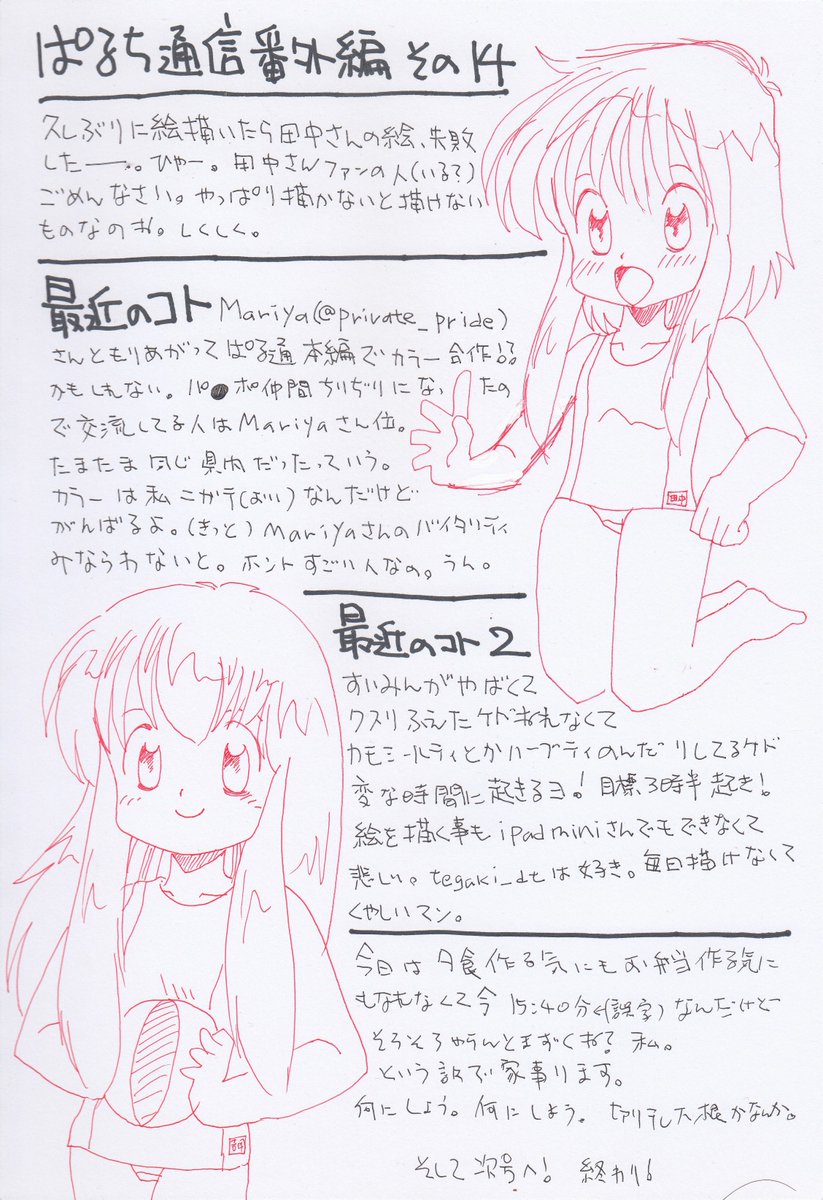 ぱるち通信番外編 その14
久しぶりに絵描いたら田中さんの絵、失敗
したーー。。ひゃー。田中さんファンの人(いる?)
ごめんなさい。やっぱり描かないと描けない
ものなのね。しくしく。
最近のコト Mariya(@private_pride)
さんともりあがってぱる通本編でカラー合作品
かもしれない。パ●ポ仲間ちりぢりになったの
で交流してる人はMariyaさん位。
たまたま同じ県内だったっていう。
カラーは私ニガテ(よい)なんだけど
がんばるよ。(きっと)Mariyaさんのバイタリティ
みならわないと。ホントすごい人なの。うん。
田中
最近のコト2
すいみんがやばくて
クスリふえたケドねれなくて
カモミールティとかハーブティのんだりしてるケド
変な時間に起きるヨ!目標3時半起き!
絵を描く事もipad miniさんでもできなくて
悲しい。tegaki_dtは好き。毎日描けなくて
くやしいマン。
今日は夕食作る気にもお弁当作る気に
もなれなくて今15:40分(誤字)なんだけど
そろそろやらんとまずくね?私。
という訳で家事ります。
何にしよう。何にしよう。大根かなんか。
そして次号へ!終わり